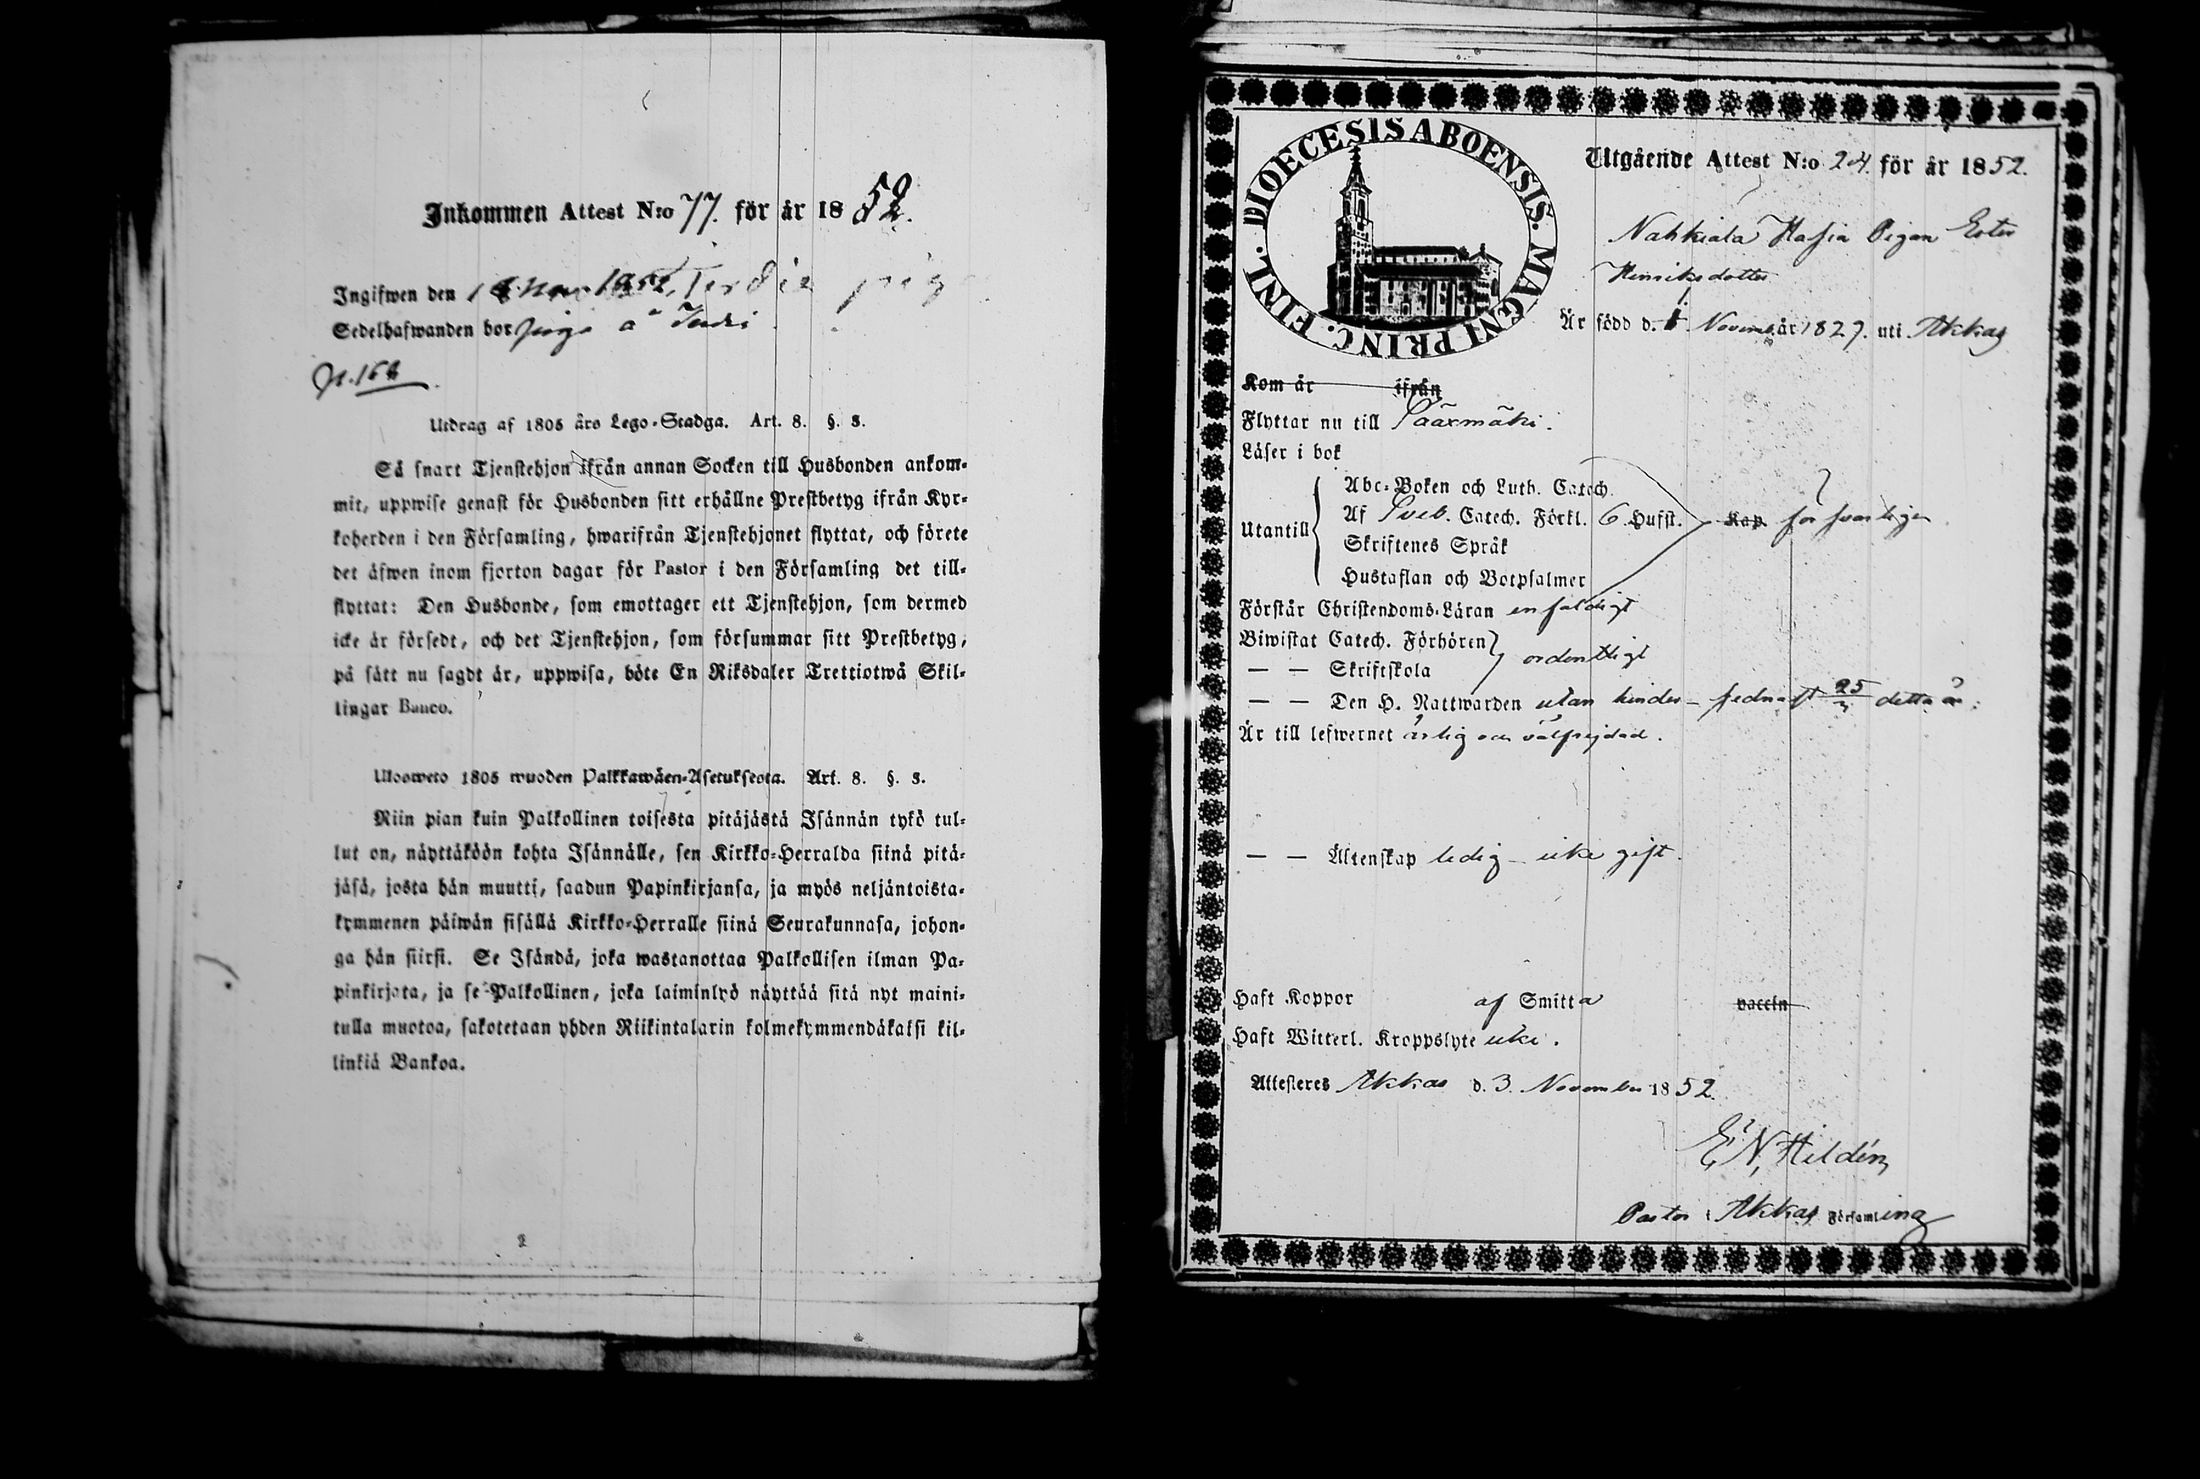 Inkommen Attest N:o 77. för år 1852.
Ingifwen den 1852,
Sedelhafwanden bor piga å
p. 168
Utdrag af 1805 års Lego-Stadga. Art. 8. §. 3.
Så snart Tjenstehjon ifrån annan Socken till Husbonden ankom-
mit, uppwise genast för Husbonden sitt erhållne Prestbetyg ifrån Kyr-
koherden i den Församling, hwarifrån Tjenstehjonet flyttat, och förete
det äfwen inom fjorton dagar för Pastor i den Församling det till-
flyttat: Den Husbonde, som emottager ett Tjenstehjon, som dermed
icke är försedt, och det Tjenstehjon, som försummar sitt Prestbetyg,
på sätt nu sagdt är, uppwisa, böte En Riksdaler Trettiotwå Skil-
lingar Banco.
Ulosweto 1805 wuoden Palkkawäen-Asetuksesta. Art. 8. §. 3.
Niin pian kuin Palkollinen toisesta pitäjästä Isännän tykö tul-
lut on, näyttäköön kohta Isännälle, sen Kirkko-Herralda siinä pitä-
jäsä, josta hän muutti, saadun Papinkirjansa, ja myös neljäntoista-
kymmenen päiwän sisällä Kirkko-Herralle siinä Seurakunnasa, johon-
ga hän siirsi. Se Isändä, joka wastanottaa Palkollisen ilman Pa-
pinkirjata, ja se Palkollinen, joka laiminlyö näyttää sitä nyt maini-
tulla muotoa, sakotetaan yhden Riikintalarin kolmekymmendäkaksi kil-
linkiä Bankoa.
DIOECESIS ABOENSIS. MAGNI PRINC. FINL.
Utgående Attest N:o 24. för år 1852.
Nahkiala Pigan Ester
Henriksdotter
Är född d. Novemb. år 1827. uti Akkas
Kom år ifrån
Flyttar nu till Sääxmäki.
Läser i bok
Abc-Boken och Luth. Catech.
Utantill Af Sveb. Catech. Förkl. 6 Hufst. Kap försvarligen
Skriftenes Språk
Hustaflan och Botpsalmer
Förstår Christendoms-Läran enfaldigt
Biwistat Catech. Förhören
— — Skriftskola ordentligt
— — Den H. Nattwarden utan hinder – sednast 25 detta år.
Är till lefwernet ärlig och välfrejdad.
— — Äktenskap ledig – icke gift.
Haft Koppor af Smitta vaccin
Haft Witterl. Kroppslyte icke.
Attesteres Akkas d. 3. November 1852.
E. N. Hildén
Pastor i Akkas Församling